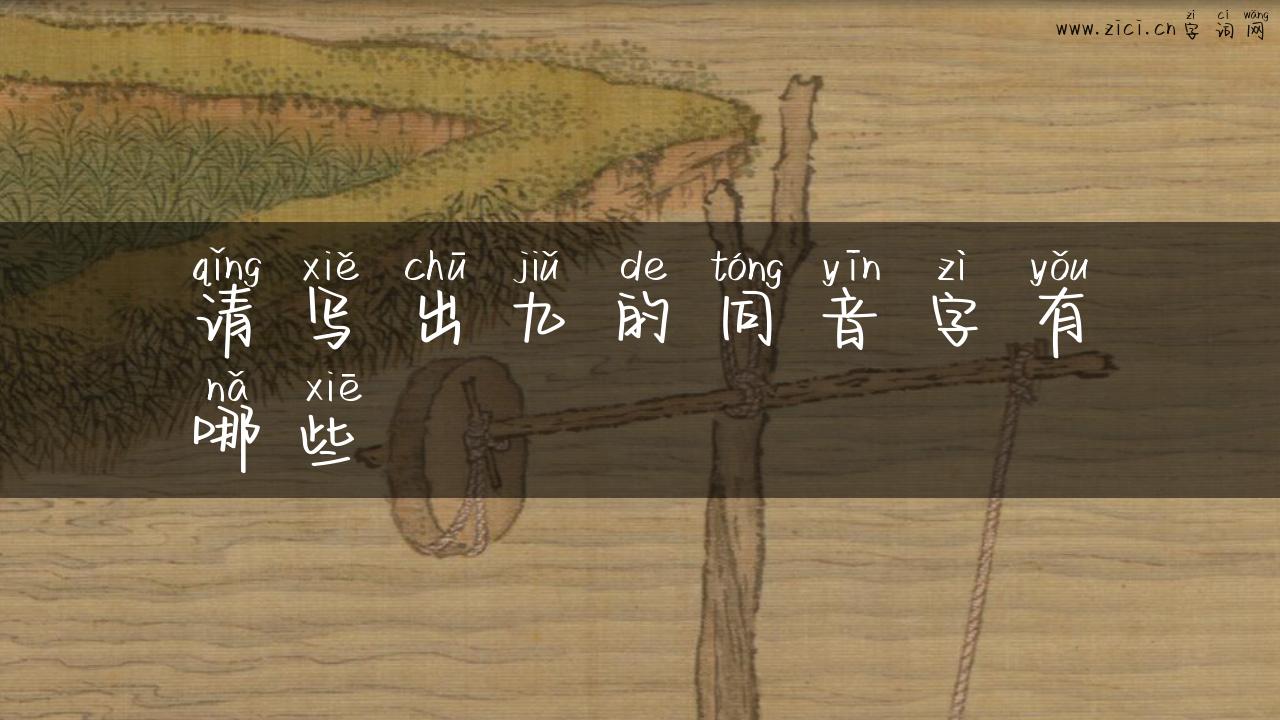 zì cí wǎng
www.zici.cn 字 词 网
qǐng xiě chū jiǔ de tóng yīn zì yǒu
请 写 出 九 的 同 音 字 有
nǎ xiē
哪 些